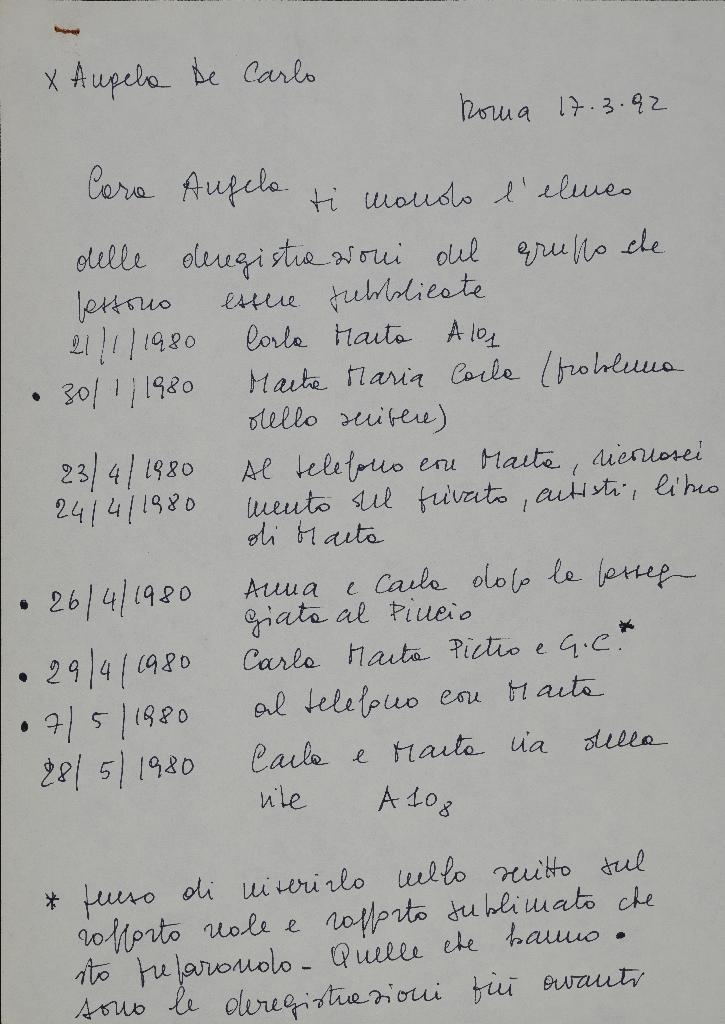 x Angela De Carlo
Roma 17.3.92
Cara Angela ti mando l'elenco
delle deregistrazioni del gruppo che
possono essere pubblicate
21/1/1980 Carla Marta A101
• 30/1/1980 Marta Maria Carla (problema
dello scrivere)
23/4/1980 Al telefono con Marta, riconosci
24/4/1980 mento sul privato, artisti, libro
di Marta
• 26/4/1980 Anna e Carla dopo la passeg-
giata al Pincio
• 29/4/1980 Carla Marta Pietro e G.C.*
• 7/5/1980 al telefono con Marta
28/5/1980 Carla e Marta via della
vite A108
* penso di inserirlo nello scritto sul
rapporto reale e rapporto sublimato che
sto preparando - Quelle che hanno •
sono le deregistrazioni più avanti